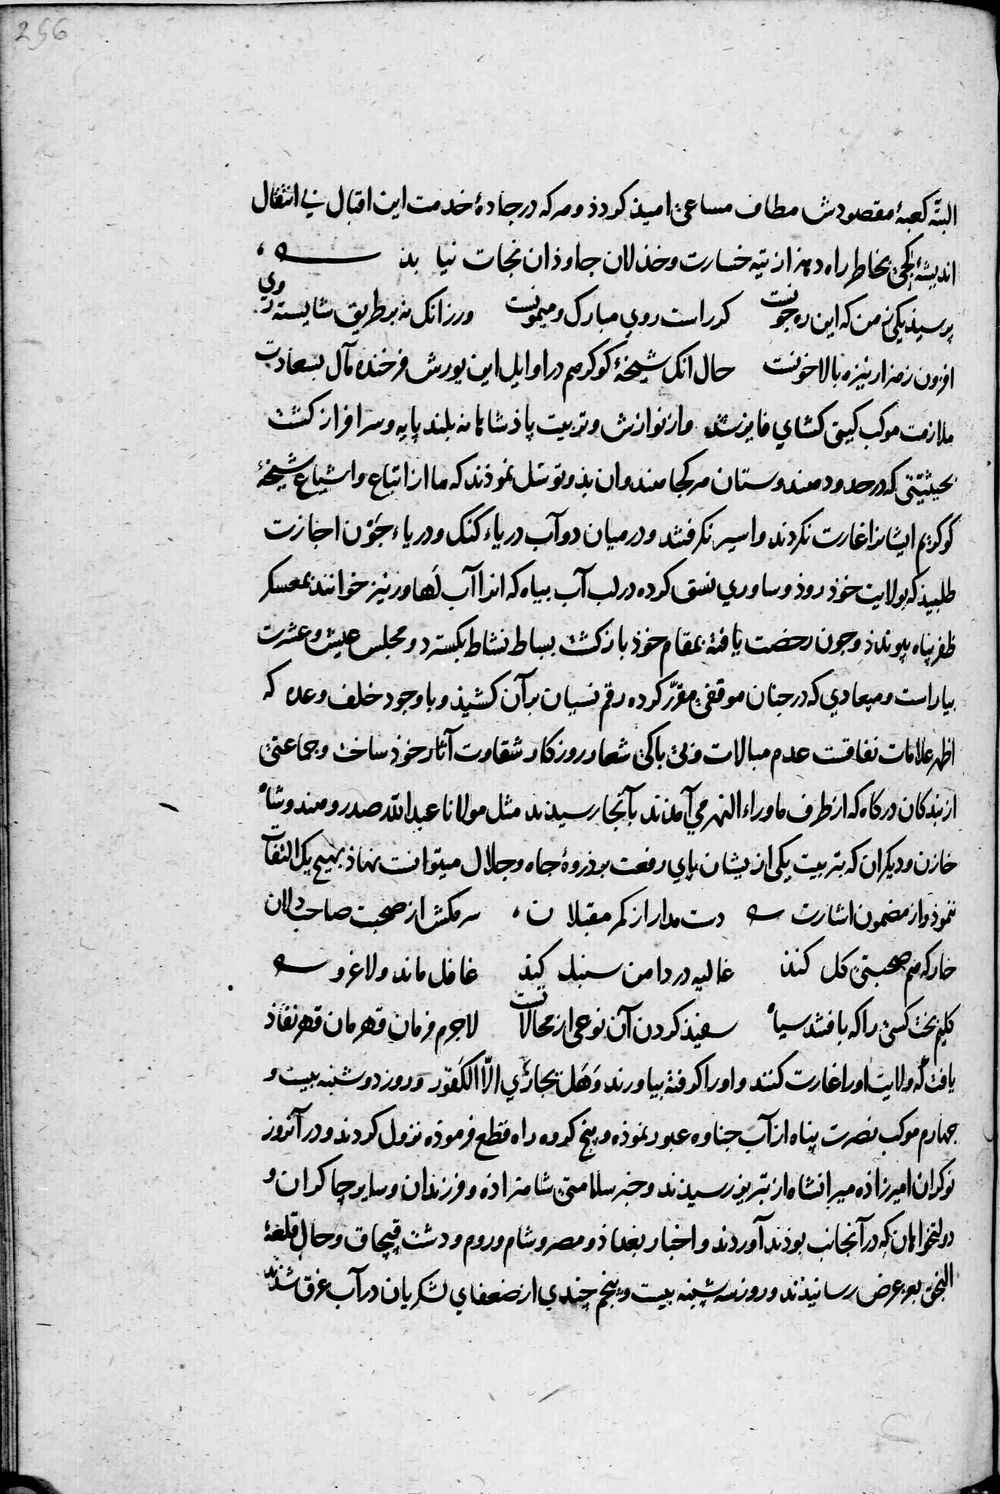 256
البتّه کعبهٔ مقصودش مطاف مساعیٔ امیذ کردذ و هرکه در جادهٔ خدمت این اقبال بی انتقال
اندیشهٔ کجی بخاطر راه دهد از تیه خسارت و خذلان جاوذان نجات نیابذ
پرسیذ یکی زمن که این ره چونست کر راست روی مبارک و میمونست ورزانک نه بر طریق شایسته روی
افزون ز هزار نیزه بالا خونست حال انک شیخهٔ کوکر هم در اوایل این یورش فرخنده مآل بسعادت
ملازمت موکب کیتی کشای فایز شد و از نوازش و تربیت پاذشاهانه بلند پایه و سرافراز کشت
بحیثیّتی که در حدود هندوستان هرکجا هندوان بذو توسّل نموذند که ما از اتباع و اشیاع شیخهٔ
کوکریم ایشانرا غارت نکردند و اسیر نکرفتند و درمیان دو آب دریاء کنک و دریاء جَوْن اجازت
طلبیذ که بولایت خوذ روذ و ساوری نسق کرده در لب آب بیاه که انرا آب لَهاور نیز خوانند بمعسکر
ظفر پناه پیوندذ و چون رخصت یافته بمقام خوذ بازکشت بساط نشاط بکسترد و مجلس عیش و عشرت
بیاراست و میعادی که در چنان موقفی مقرّر کرده رقم نسیان بر آن کشیذ و با وجود خلف وعده که
اظهر علامات نفاقست عدم مبالات و بی باکی شعار روزکار شقاوت آثار خوذ ساخت و جماعتی
از بندکان درکاه که از طرف ماوراء النهر می آمذند بآنجا رسیدند مثل مولانا عبدالله صدر و هندو شاه
خازن و دیکران که بتربیت یکی ازیشان پای رفعت بر ذروهٔ جاه و جلال میتوانست نهاذ بهیچ یک التفات
ننموذ و از مضمون اشارت دست مدار از کمر مقبلان سر مکش از صحبت صاحب دلان
خار که هم صحبتی کل کنذ غالیه در دامن سنبل کنذ غافل ماند و لاغرو
کلیم بخت کسی را که بافتند سیاه سفیذ کردن آن نوعی از محالاتست لاجرم فرمان قهرمان قهر نفاذ
یافت که ولایت اورا غارت کنند و اورا کرفته بیاورند وَهَل نجازی الّا الکَفور و روز دوشنبه بیست و
چهارم موکب نصرت پناه از آب جناوه عبور نموذه و پنج کروه راه قطع فرموذه نزول کردند و در آنروز
نوکران امیرزاذه میرانشاه از تبریز رسیذند و خبر سلامتی شاهزاذه و فرزندان و سایر چاکران و
دولتخواهان که در آنجانب بوذند آوردند و اخبار بغداذ و مصر و شام و روم و دشت قپچاق و حال قلعهٔ
النجق بعرض رسانیذند و روز سه شنبه بیست و پنجم چندی از ضعفای لشکریان در آب غرق شذند